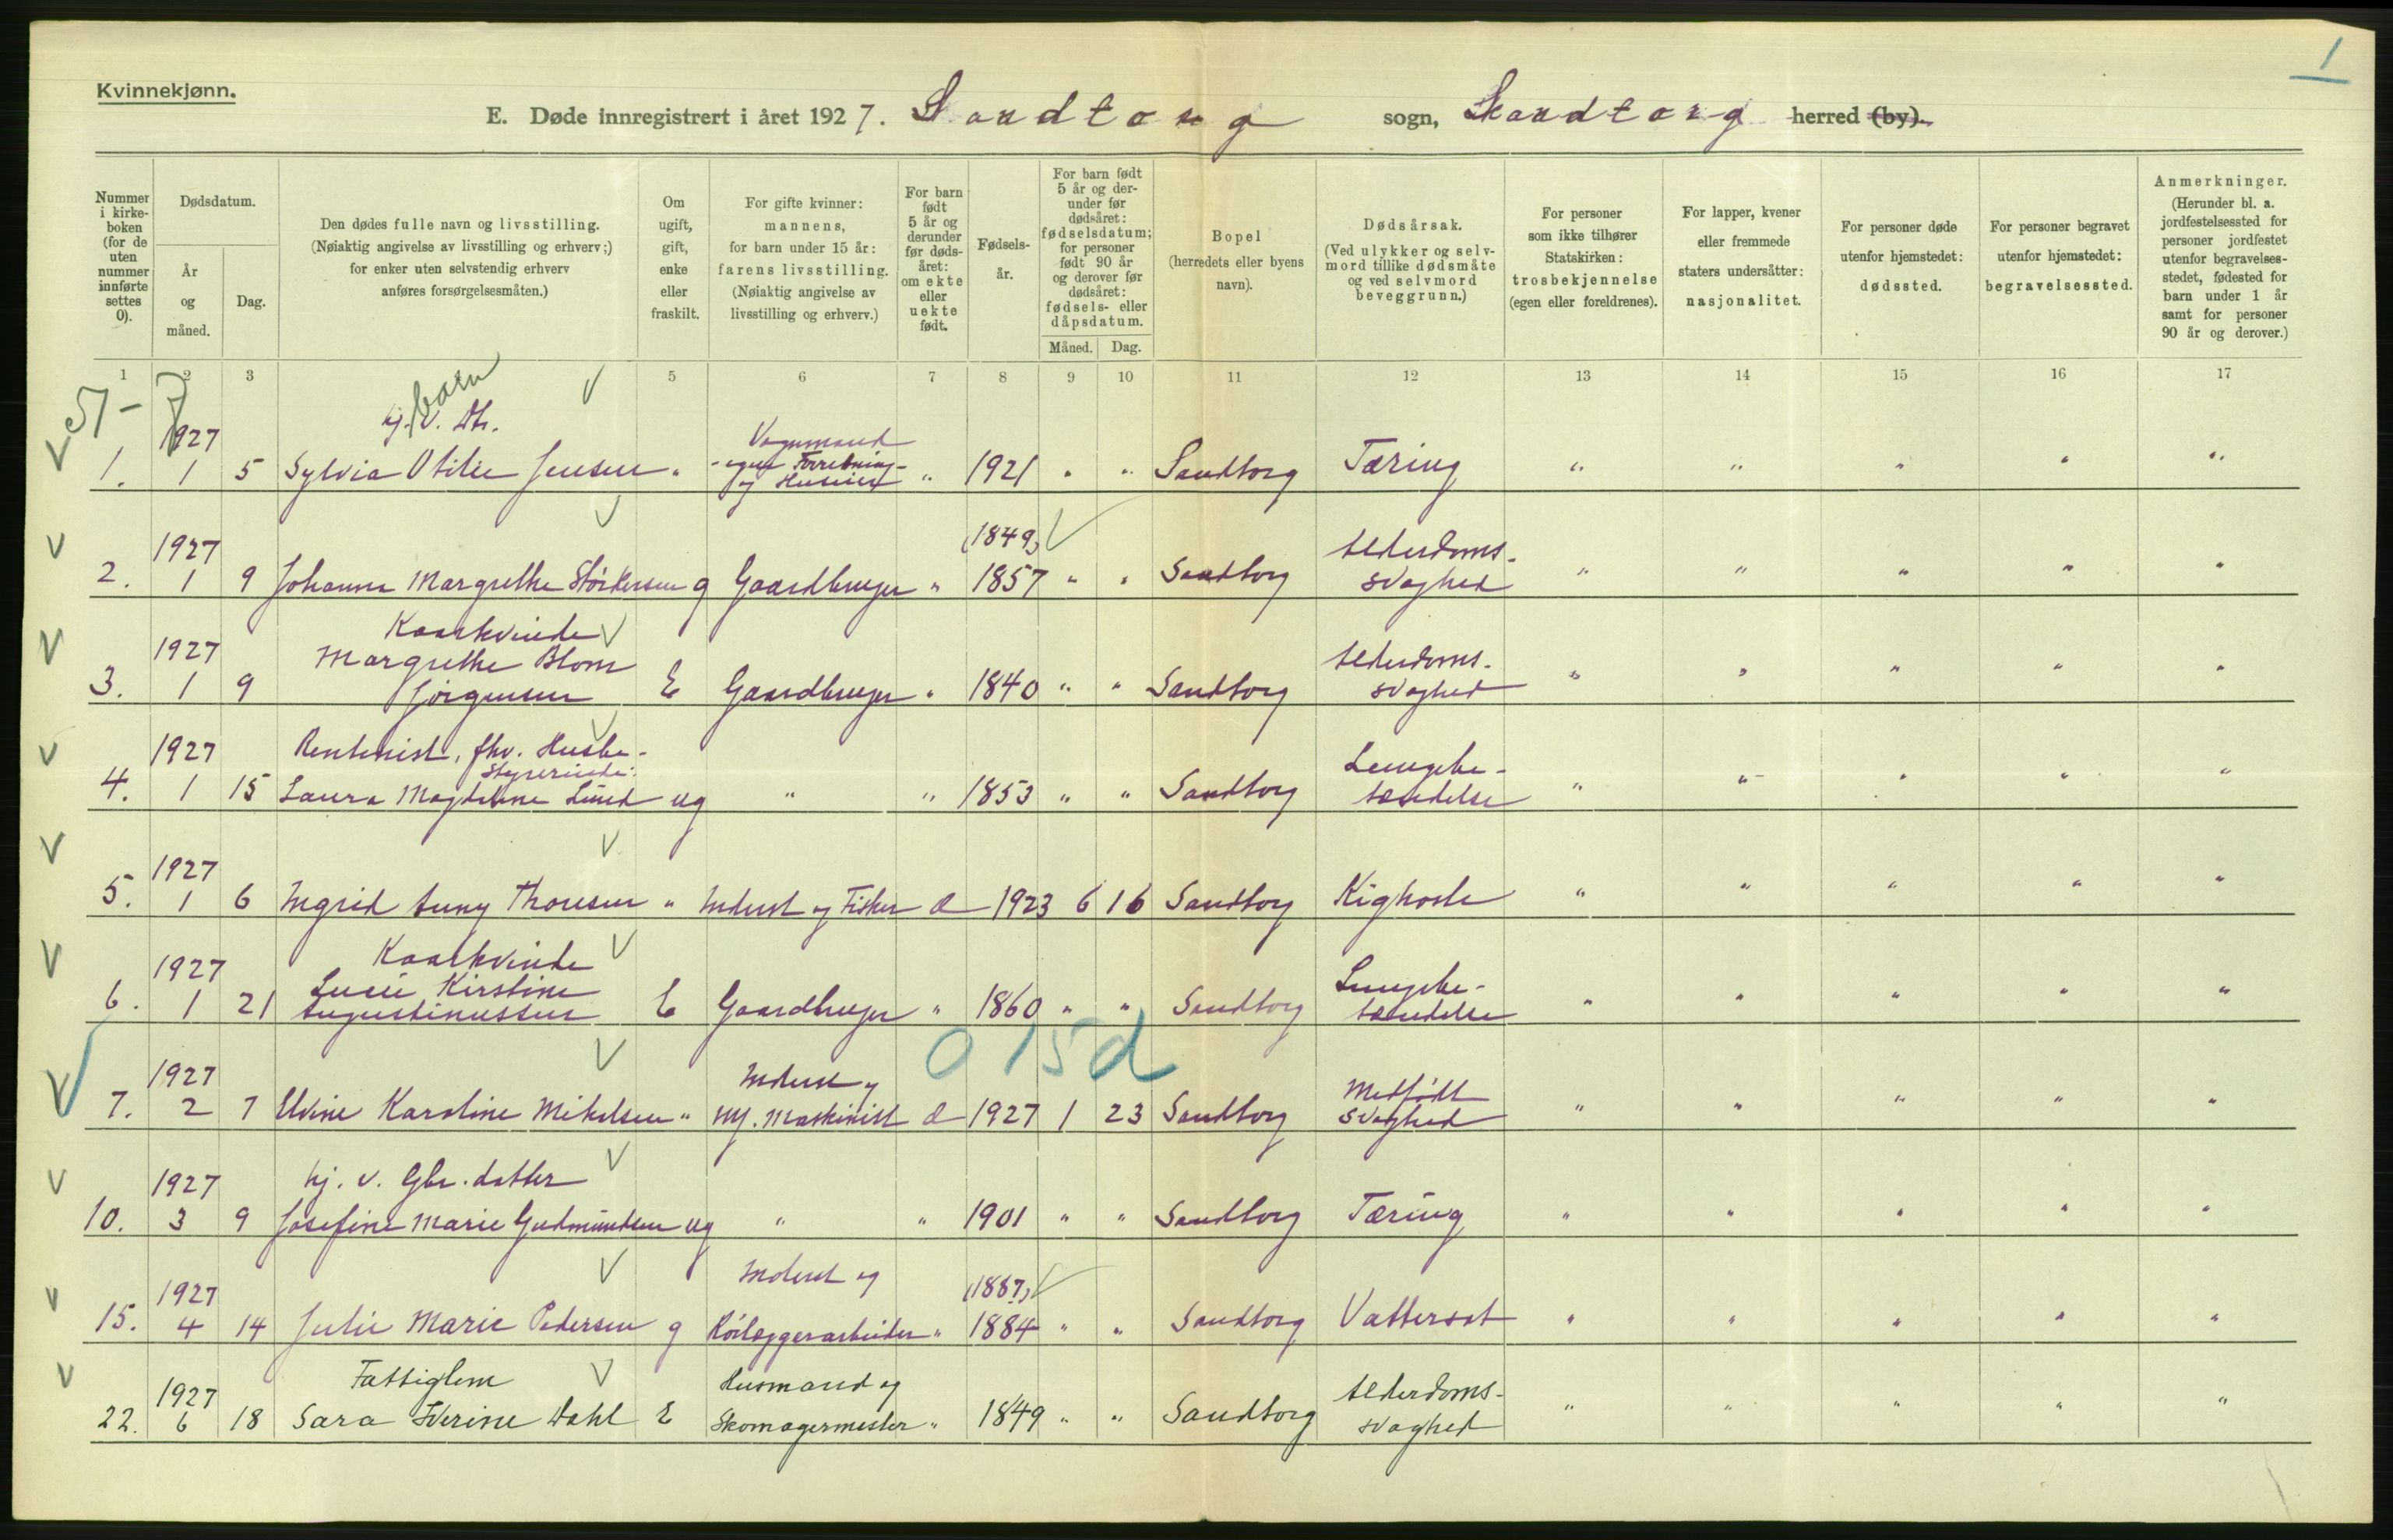 1
Kvinnekjønn.
E. Døde innregistrert i året 1927. Sandtorg sogn, Sandtorg herred (by).
Nummer i kirkeboken (for de uten nummer innførte settes 0).
Dødsdatum.
År og måned.
Dag.
Den dødes fulle navn og livsstilling.
(Nøiaktig angivelse av livsstilling og erhverv;)
for enker uten selvstendig erhverv
anføres forsørgelsesmåten.)
Om ugift, gift, enke eller fraskilt.
For gifte kvinner:
mannens,
for barn under 15 år:
farens livsstilling.
(Nøiaktig angivelse av
livsstilling og erhverv.)
For barn født 5 år og derunder før dødsåret: om ekte eller uekte født.
Fødselsår.
For barn født 5 år og derunder før dødsåret: fødselsdatum; for personer født 90 år og derover før dødsåret: fødsels- eller dåpsdatum.
Måned. Dag.
Bopel
(herredets eller byens
navn).
Dødsårsak.
(Ved ulykker og selvmord tillike dødsmåte og ved selvmord beveggrunn.)
For personer
som ikke tilhører
Statskirken:
trosbekjennelse
(egen eller foreldrenes).
For lapper, kvener
eller fremmede
staters undersåtter:
nasjonalitet.
For personer døde
utenfor hjemstedet:
dødssted.
For personer begravet
utenfor hjemstedet:
begravelsessted.
Anmerkninger.
(Herunder bl. a.
jordfestelsessted for
personer jordfestet
utenfor begravelsesstedet, fødested for
barn under 1 år
samt for personer
90 år og derover.)
1 2 3 5 6 7 8 9 10 11 12 13 14 15 16 17
barn
1927 hj. v. Dtr.
1. 1 5 Sylvia Otilie Jensen " og Huseier " 1921 " " Sandtorg Tæring " " " " "
1927 (1849)
2. 1 9 Johanna Margrethe Størkersen g Gaardbruger " 1857 " " Sandtorg Alderdomssvaghed " " " " "
1927 Kaarkvinde
3. 1 9 Margrethe Blom Jörgensen E Gaardbruger " 1840 " " Sandtorg Alderdomssvaghed " " " " "
1927 Rentenist, fhv. Husbestyrerinde
4. 1 15 Laura Magdalene Lund ug " " 1853 " " Sandtorg Lungebetændelse " " " " "
1927
5. 1 6 Ingrid Anny Thoresen " Inderst og Fisker æ 1923 6 16 Sandtorg Kighoste " " " " "
1927 Kaarkvinde
6. 1 21 Lucie Kirstine Augustinussen E Gaardbruger " 1860 " " Sandtorg Lungebetændelse " " " " "
0 15d
1927 Inderst og
7. 2 7 Elvine Karoline Mikelsen " Maskinist æ 1927 1 23 Sandtorg Medfödt svaghed " " " " "
1927 hj. v. Gbr. datter
10. 3 9 Josefine Marie Gudmundsen ug " " 1901 " " Sandtorg Tæring " " " " "
1927 Inderst og (1887)
15. 4 14 Julie Marie Pedersen g " 1884 " " Sandtorg Vattersot " " " " "
1927 Fattiglem Husmand og
22. 6 18 Sara Dahl E Skomagermester " 1849 " " Sandtorg Alderdomssvaghed " " " " "